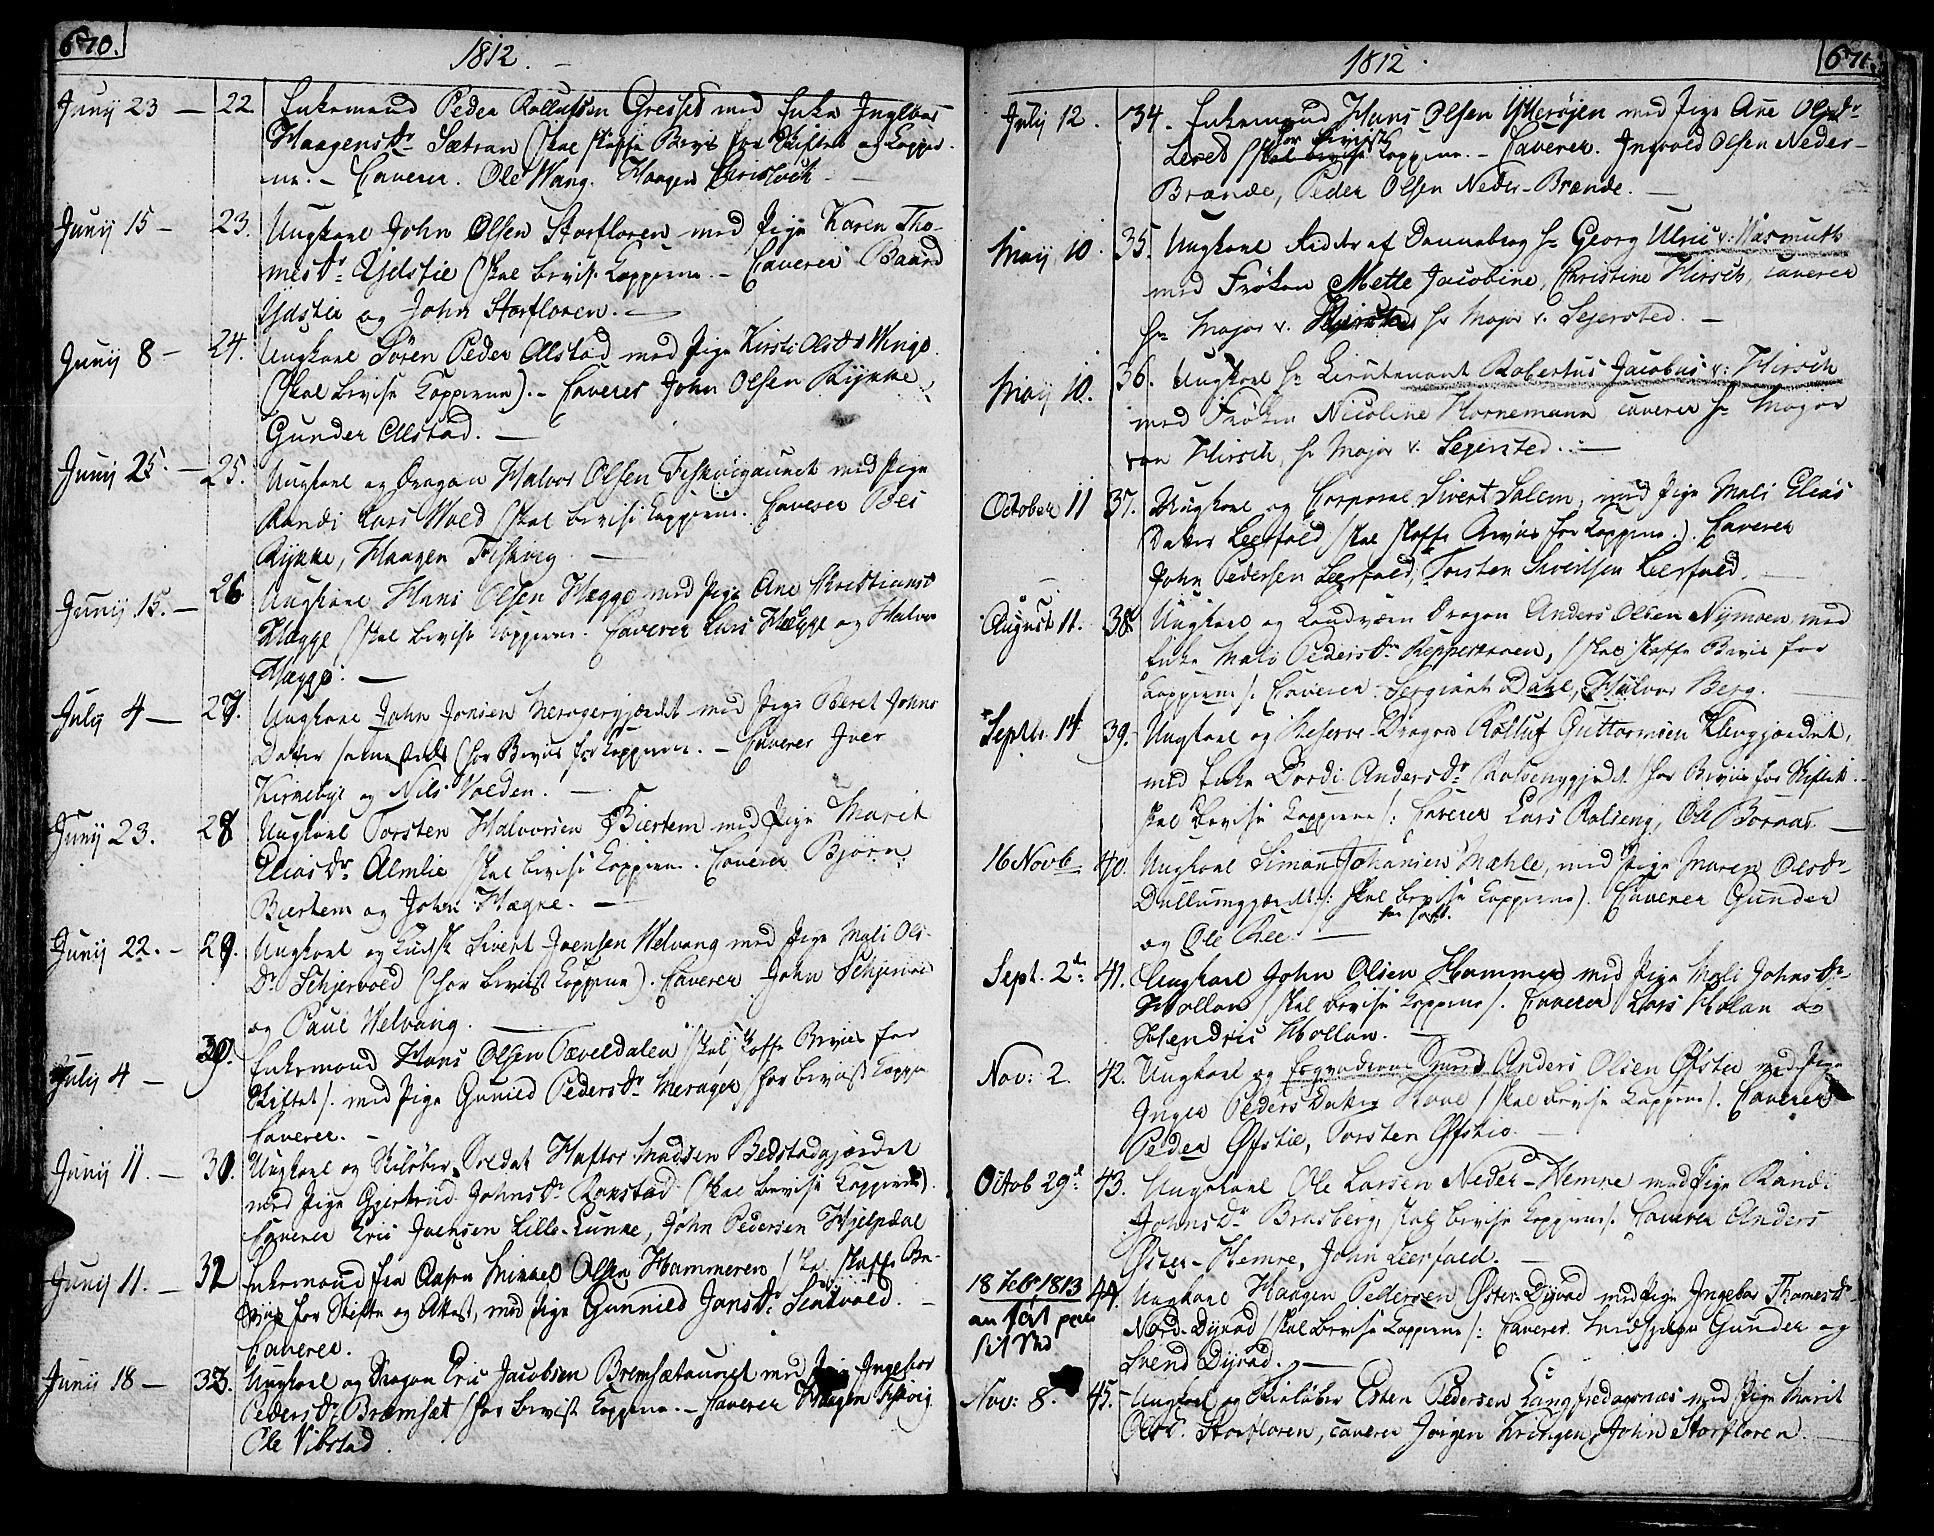 670.
1812.
Junij 23 — 22. Enkemand Peder Rollufsen Gresset med Enke Ingebor
Haagensdr. Sætran (skal skaffe Beviis for Skiftet og Koppe-
ne. — Caverer. Ole Wang. Haagen
Junij 15 — 23. Ungkarl John Olsen Storfloren med Pige Karen Tho-
mesdr. Ydstie (skal bevise Kopperne. — Caverer Baard
Ydstie og John Storfloren. —
Junij 8 — 24. Ungkarl Sören Peder Alstad med Pige Kirsti Olsdr Winge
(skal bevise Kopperne). — Caverer John Olsen Rykke
Gunder Alstad. —
Junij 25. — 25. Ungkarl og Dragon Halvor Olsen Fiskvigaunet med Pige
Randi Lars Wold (skal bevise Kopperne. Caverer
Rykke, Haagen Fiskvig —
Junij 15. — 26 Ungkarl Hans Olsen Hegge med Pige Ane Christians
Hegge (skal bevise Kopperne. Caverer Lars Hegge og Halvor
Hegge. —
July 4 — 27. Ungkarl John Jonsen Meragergjærdet med Pige Beret Johns
Datter samestæds (har Beviis for Kopperne. — Caverer Iver
Kirkebye og Nils Volden. —
Junij 23. 28 Ungkarl Torsten Halvorsen Biertem med Pige Marit
Eliasdr. Almlie skal bevise Kopperne. Caverer Björn
Biertem og John Hægre. —
Junij 22. — 29. Ungkarl og Sivert Joensen Welvang med Pige Mali Ols-
dr. Schjervold (har bevist Kopperne). Caverer John Schjervold
og Paul Welvang. —
July 4 — 30. Enkemand Hans Olsen Tæveldalen skal skaffe Beviis for
Skiftet/. med Pige Gunild Pedersdr. Merager har bevist Koppe
Caverer. —
Junij 11. — 30. Ungkarl og Skilöber Soldat Haftor Madsen Bedstadgjærdet
med Pige Gjertrud Johnsdr. Ronstad (skal bevise Kopperne)
Caverer Eric Joensen Lille-Lunke, John Pedersen Hjelpdal
Junij 11. — 32 Enkemand fra Aasen Mikkel Olsen Hammeren /skal skaffe Be-
viis for Skifte og Attest, med Pige Gunnild Jonsdr. —
Caverer.
Junij 18 — 33. Ungkarl og Dragon Eric Jacobsen Bremsætaunet med Pige Ingebor
Pedersdr. Bremsæt /har bevist Kopperne. — Caverer Haagen Fiskvig
Ole Vibstad.
671.
1812.
July 12. 34. Enkemand Hans Olsen Ytterøjen med Pige Ane Olsdr.
har bevist
Leret /skal bevise Kopperne. — Caverer. Ingvold Olsen Neder-
Brænde, Peder Olsen Neder-Brænde. —
Maij 10. 35. Ungkarl Ridder af Dannebrog Hr. Georg Ulric v: Wasmuth
med Frøken Mette Jacobine Christine Hirsch, caverer
Hr. Major v. Hr Major v. Sejersted. —
Maij 10. 36. Ungkarl Hr. Lieutenant Robertus Jacobus v: Hirsch
med Frøken Nicoline Hornemann caverer Hr. Major
von Hirsch, Hr Major v. Sejersted. —
October 11 37. Ungkarl og Corporal Sivert Salem, med Pige Mali Elias
Datter Leerfald /skal skaffe Beviis for Kopperne). Caverer
John Pedersen Leerfald, Torsten Sivertsen Leerfald. —
August 11. 38. Ungkarl og Landværn Dragon Anders Olsen Nymoen, med
Enke Mali Pedersdr. Reppesaaen, /skal skaffe Beviis for
Kopperne/. Caverer: Sergiant Dahl, Halvor Berg. —
Septb. 14 39. Ungkarl og Reserve-Dragon Rolluf Guttormsen Klevgjærdet,
med Enke Dordi Andersdr. har Beviis for Skiftet
skal bevise Kopperne/: Caverer Lars Rolseng, Ole Boraas —
16 Novb 40. Ungkarl Simon Johansen Mæhle, med Pige Maren Olsdr.
Dullumgjærdet: skal bevise Kopperne). Caverer Gunder
og Ole Ree. —
Sept. 2d. 41. Ungkarl John Olsen Hammer med Pige Mali Johnsdr.
Hollan /skal bevise Kopperne/. Caverer Lars Holan og
Hendric Hollan. —
Nov: 2. 42. Ungkarl og Anders Olsen Øfstie med Pige
Inger Peders Datter Hove /skal bevise Kopperne/. Caverer
Peder Øfstie, Torsten Øfstie. —
Octob 29d 43. Ungkarl Ole Larsen Neder-Hemre med Pige Randi
Johnsdr. Brasberg, skal bevise Kopperne/. Caverer Anders
Øster-Hemre, John Leerfald. —
18 Febr 1813 44. Ungkarl Haagen Pedersen Øster-Dyvad med Pige Ingebor Thomesdr.
Nord-Dyvad /skal bevise Kopperne/: Caverer Gunder og
Svend Dyvad. —
Nov: 8. 45. Ungkarl og Skieløber Esten Pedersen Langfredagsnæs med Pige Marit
Olsd. Storfloren, caverer Jørgen Kringen, John Storfloren.